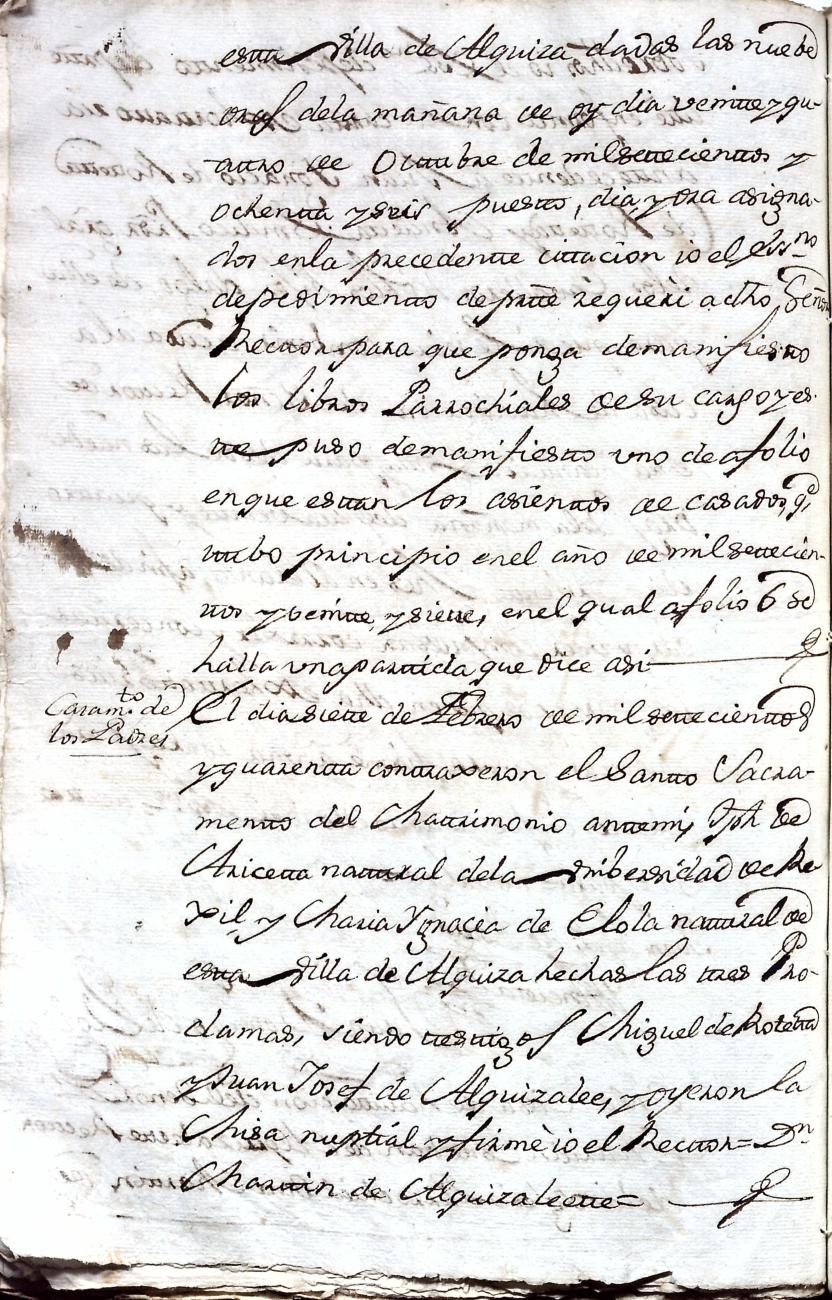 esta Villa de Alquiza dadas las nuebe
oras dela mañana de oy dia veintte y qu-
attro de Octtubre de mil settecienttos y
ochentta y seis puestto, dia, y ora asigna-
dos enla precedentte cittacion io el Essno
de pedimientto de partte requerì a dho Señor
Recttor para que ponga demanifiestto
los libros Parrochiales de su cargo y es-
tte puso demanifiestto uno de afolio
en que esttan los asienttos de casados, qe
ttubo principio en el año de mil settecien-
ttos y veintte, y siette, en el qual afolio 6 se
halla una parttida que dice asi
Casamto de
los Padres
El dia siette de Febrero de mil settecienttos
y quarentta contraxeron el Santto Sacra-
mentto del Mattrimonio anttemi, Jph de
Aricetta natturral dela Unibersidad de Re-
xil, y Maria Ygnacia de Elola natturral de
estta Villa de Alquiza hechas las ttres Pro-
clamas, siendo ttesttigos Miguel de Rotetta
y Juan Josef de Alquizalee, y oyeron la
Misa nuptial y firmè io el Recttor = Dn
Marttin de Alquizaleette =